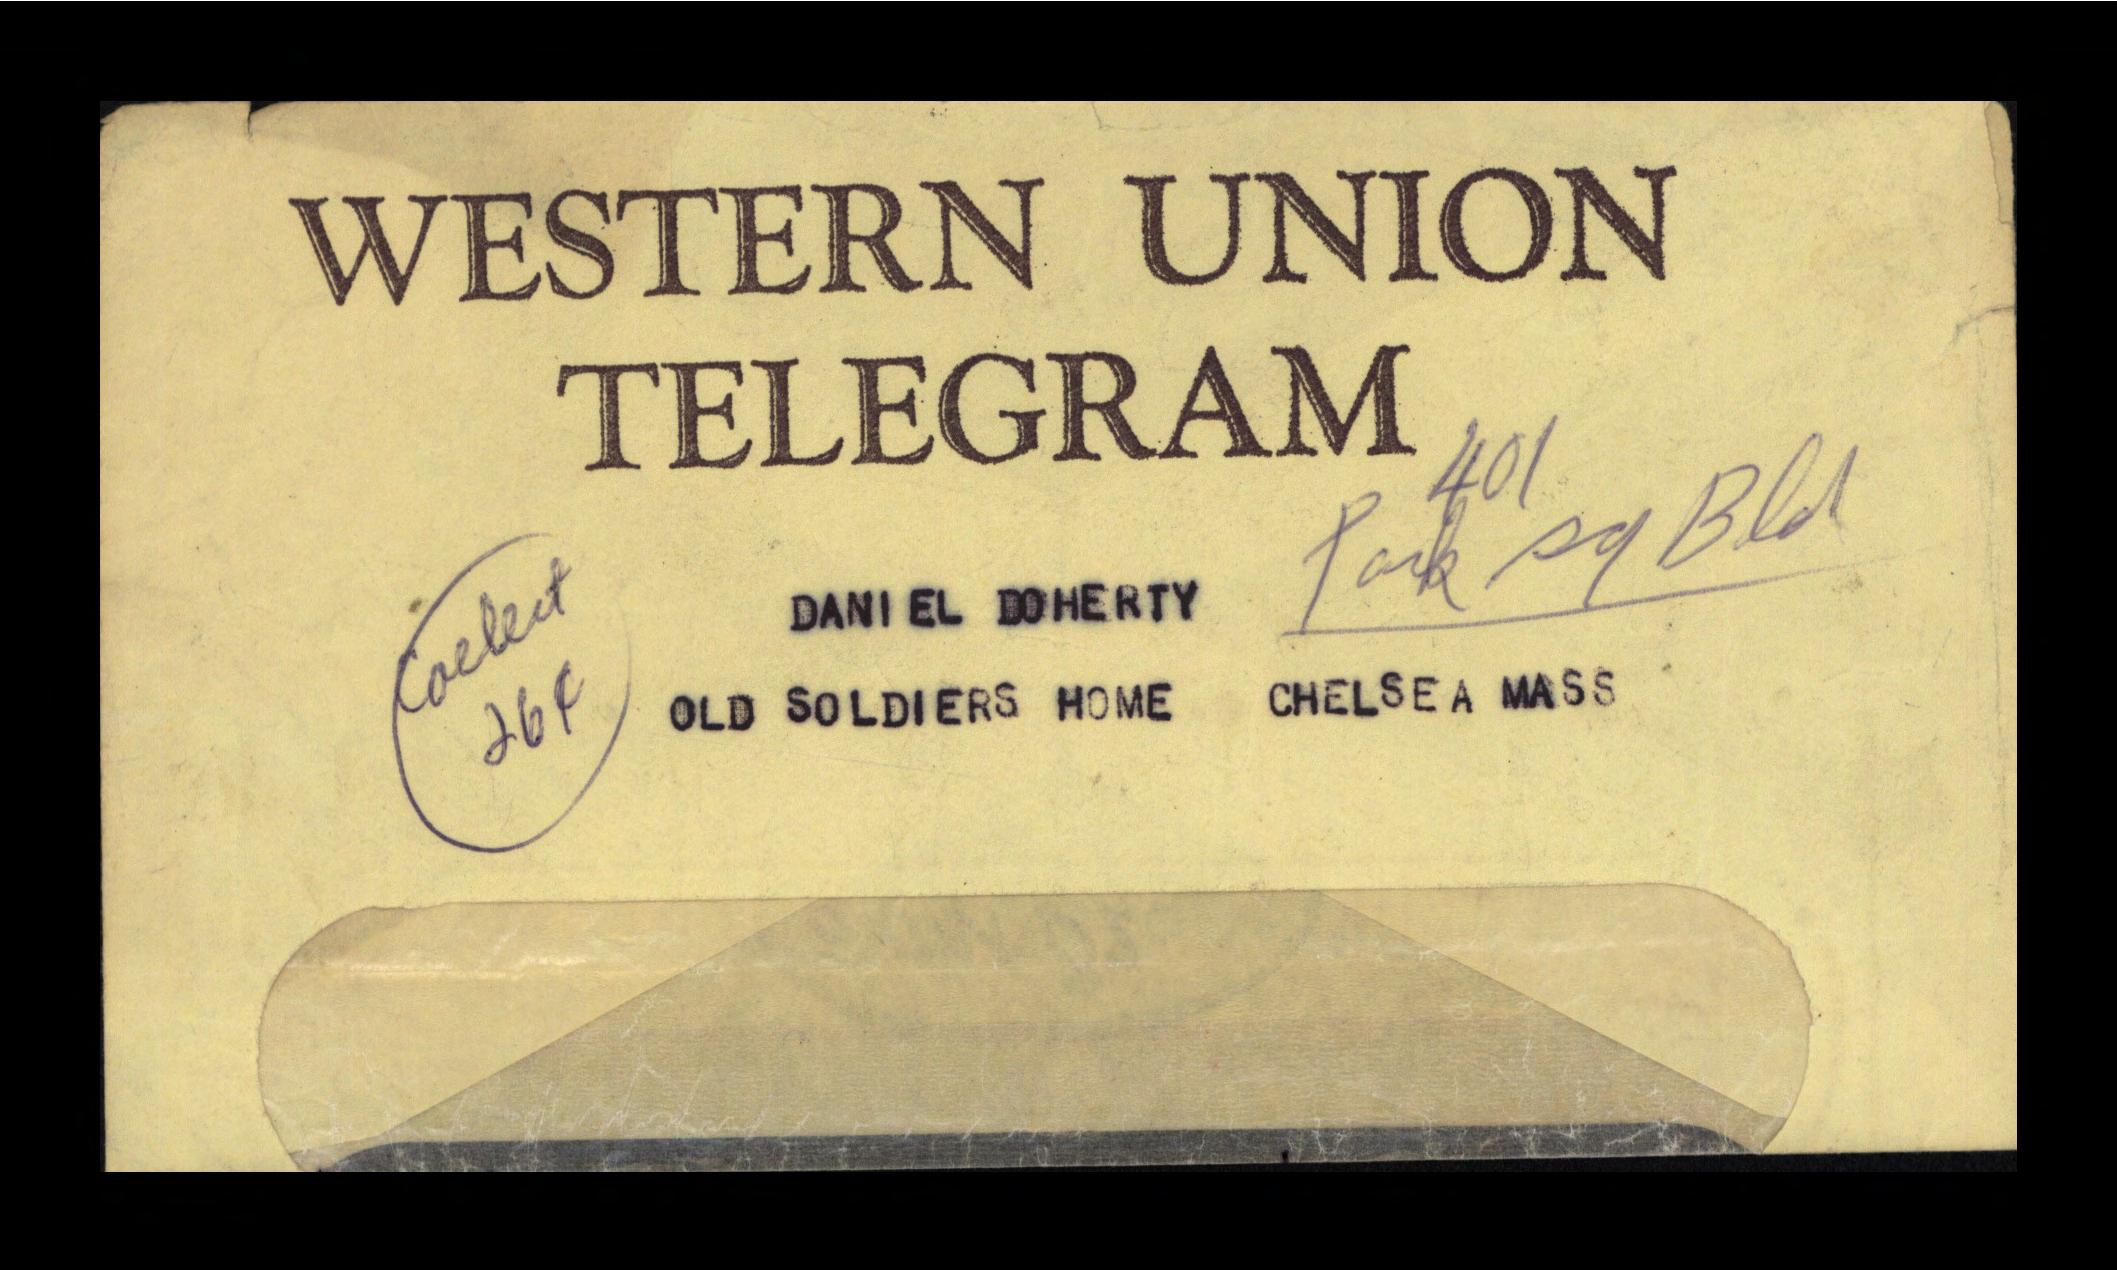 WESTERN UNION
TELEGRAM
401
Park sq Bld
Collect
26¢
DANIEL DOHERTY
OLD SOLDIERS HOME CHELSEA MASS